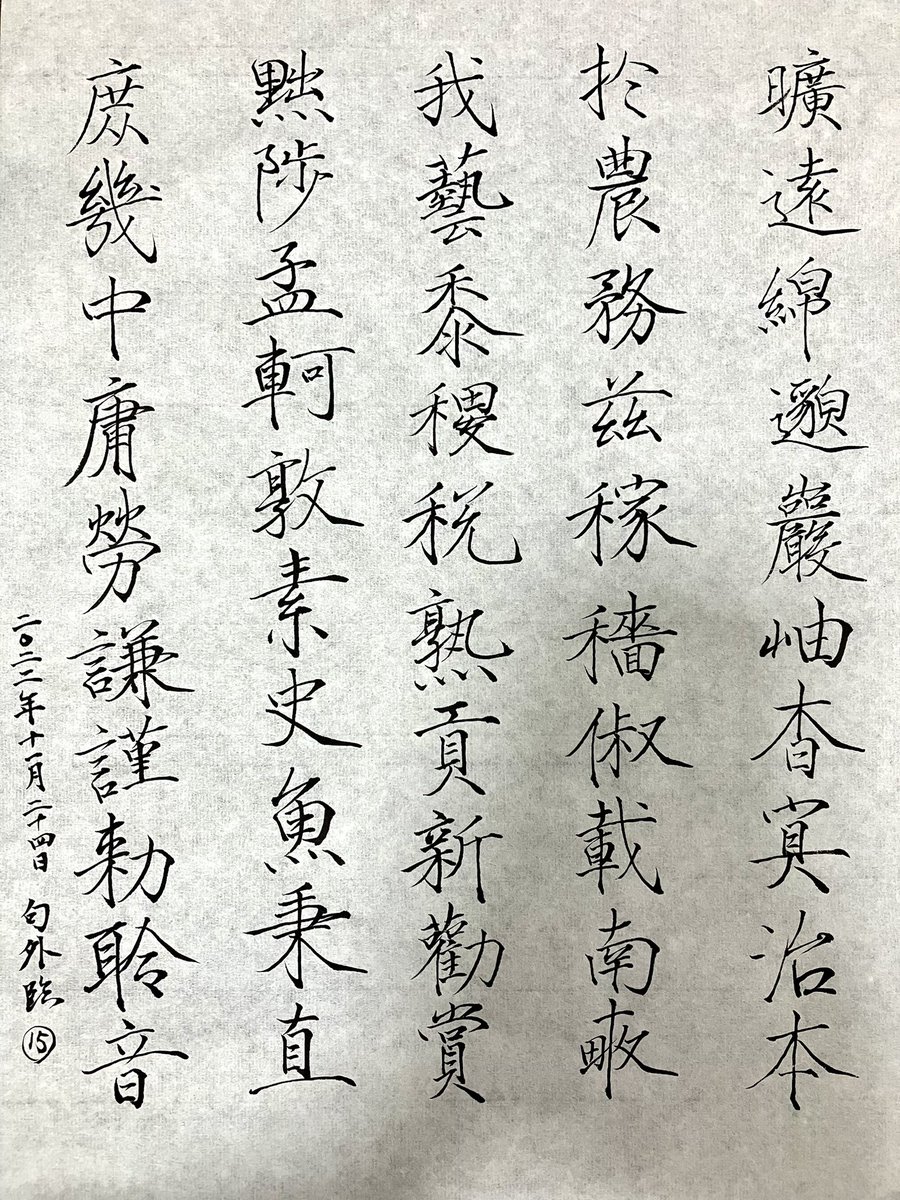 曠遠綿邈巖岫杳冥治本
於農務茲稼穡俶載南畝
我藝黍稷稅熟貢新勸賞
黜陟孟軻敦素史魚秉直
庶幾中庸勞謙謹勅聆音
二〇二二年十一月二十四日 句外臨 ⑮